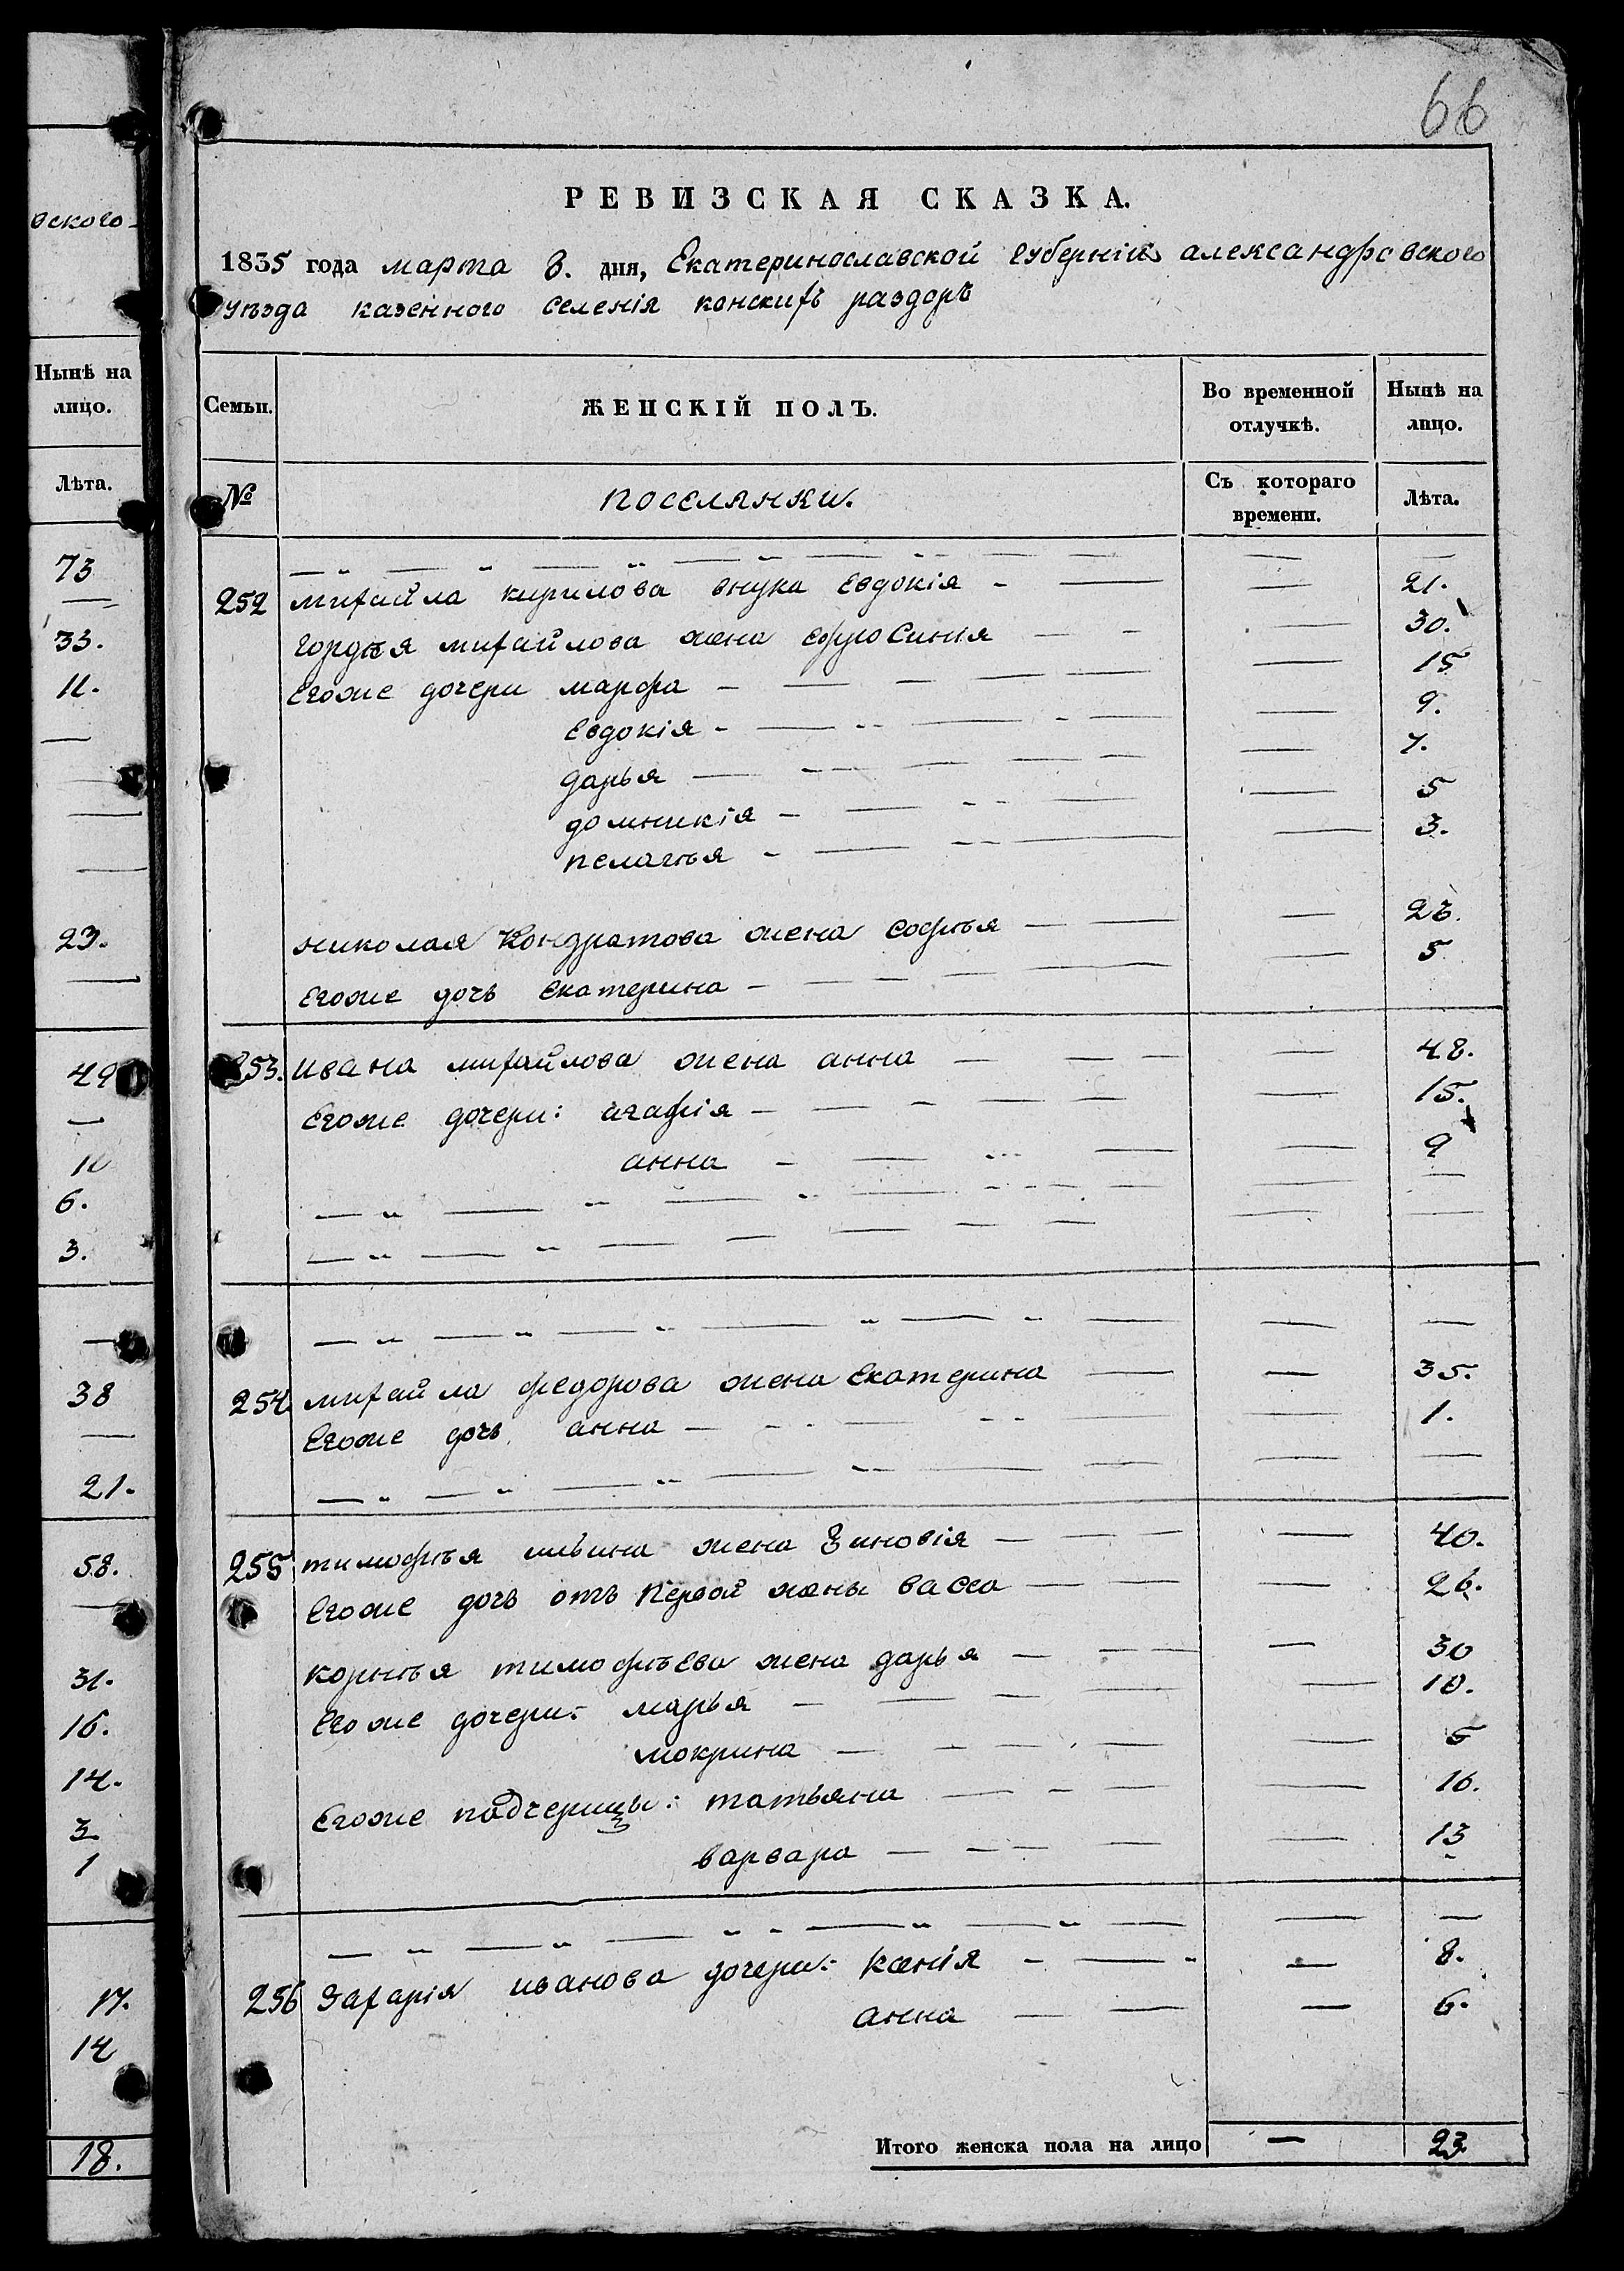 66
РЕВИЗСКАЯ СКАЗКА.
1835 года марта 3. дня, Екатеринославской губерніи александровского
уѣзда казенного селенія конскихъ раздоръ
Семьи. ЖЕНСКІЙ ПОЛЪ. Во временной отлучкѣ. Нынѣ на лицо.
№ поселянки. Съ котораго времени. Лѣта.
252 михайла кирилова внука Евдокія - — — 21.
гордѣя михайлова жена ефросинія — - — 30.
Егоже дочери марфа - — — 15
Евдокія - — — 9.
дарья — — 7.
домникія - — — 5
пелагѣя - — — 3.
николая Кондратова жена софѣя — — — 23.
Егоже дочь Екатерина - — — 5
253. ивана михайлова жена анна — — — 48.
Егоже дочери: агафія - — — 15.
анна - — — 9
254. михайла федорова жена Екатерина — — 35.
Егоже дочь анна — — 1.
255 тимофѣя ильина жена Зиновія — — 40.
Егоже дочь отъ первой жены васса — — 26.
корнѣя тимофѣева жена дарья — — 30
Егоже дочери: марья — — 10.
мокрина — — 5
Егоже падчерицы: татьяна — — 16.
варвара — — 13
256 Захарія иванова дочери: Ксенія - — — 8.
анна — — 6.
Итого женска пола на лицо — 23.
вского
Нынѣ на
лицо.
Лѣта.
73
33.
11.
23.
49
11
6.
3.
38
21.
58.
31.
16.
14.
3
1
17.
14
18.